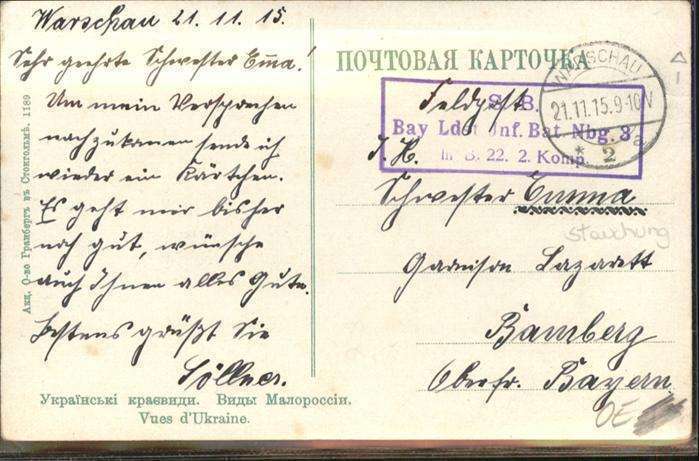 Warschau 21. 11. 15.
Sehr geehrte Schwester Em̅a!
Um mein Versprechen
nachzukommen sende ich
wieder ein Kärtchen.
Es geht mir bisher
noch gut, wünsche
auch Ihnen alles Gute.
Bestens grüßt Sie
Söllner.
Українські краєвиди. Виды Малороссіи.
Vues d'Ukraine.
Акц. О-во Гранбергъ въ Стокгольмѣ, 1189
ПОЧТОВАЯ КАРТОЧКА
WARSCHAU
21.11.15.9-10V
* 2 a
S. B.
Bay Ldst Inf. Bat. Nbg. 3
III B. 22. 2. Komp.
Feldpost
I. H.
Schwester Emma
Garnison Lazarett
Bamberg
Oberfr. Bayern
OE